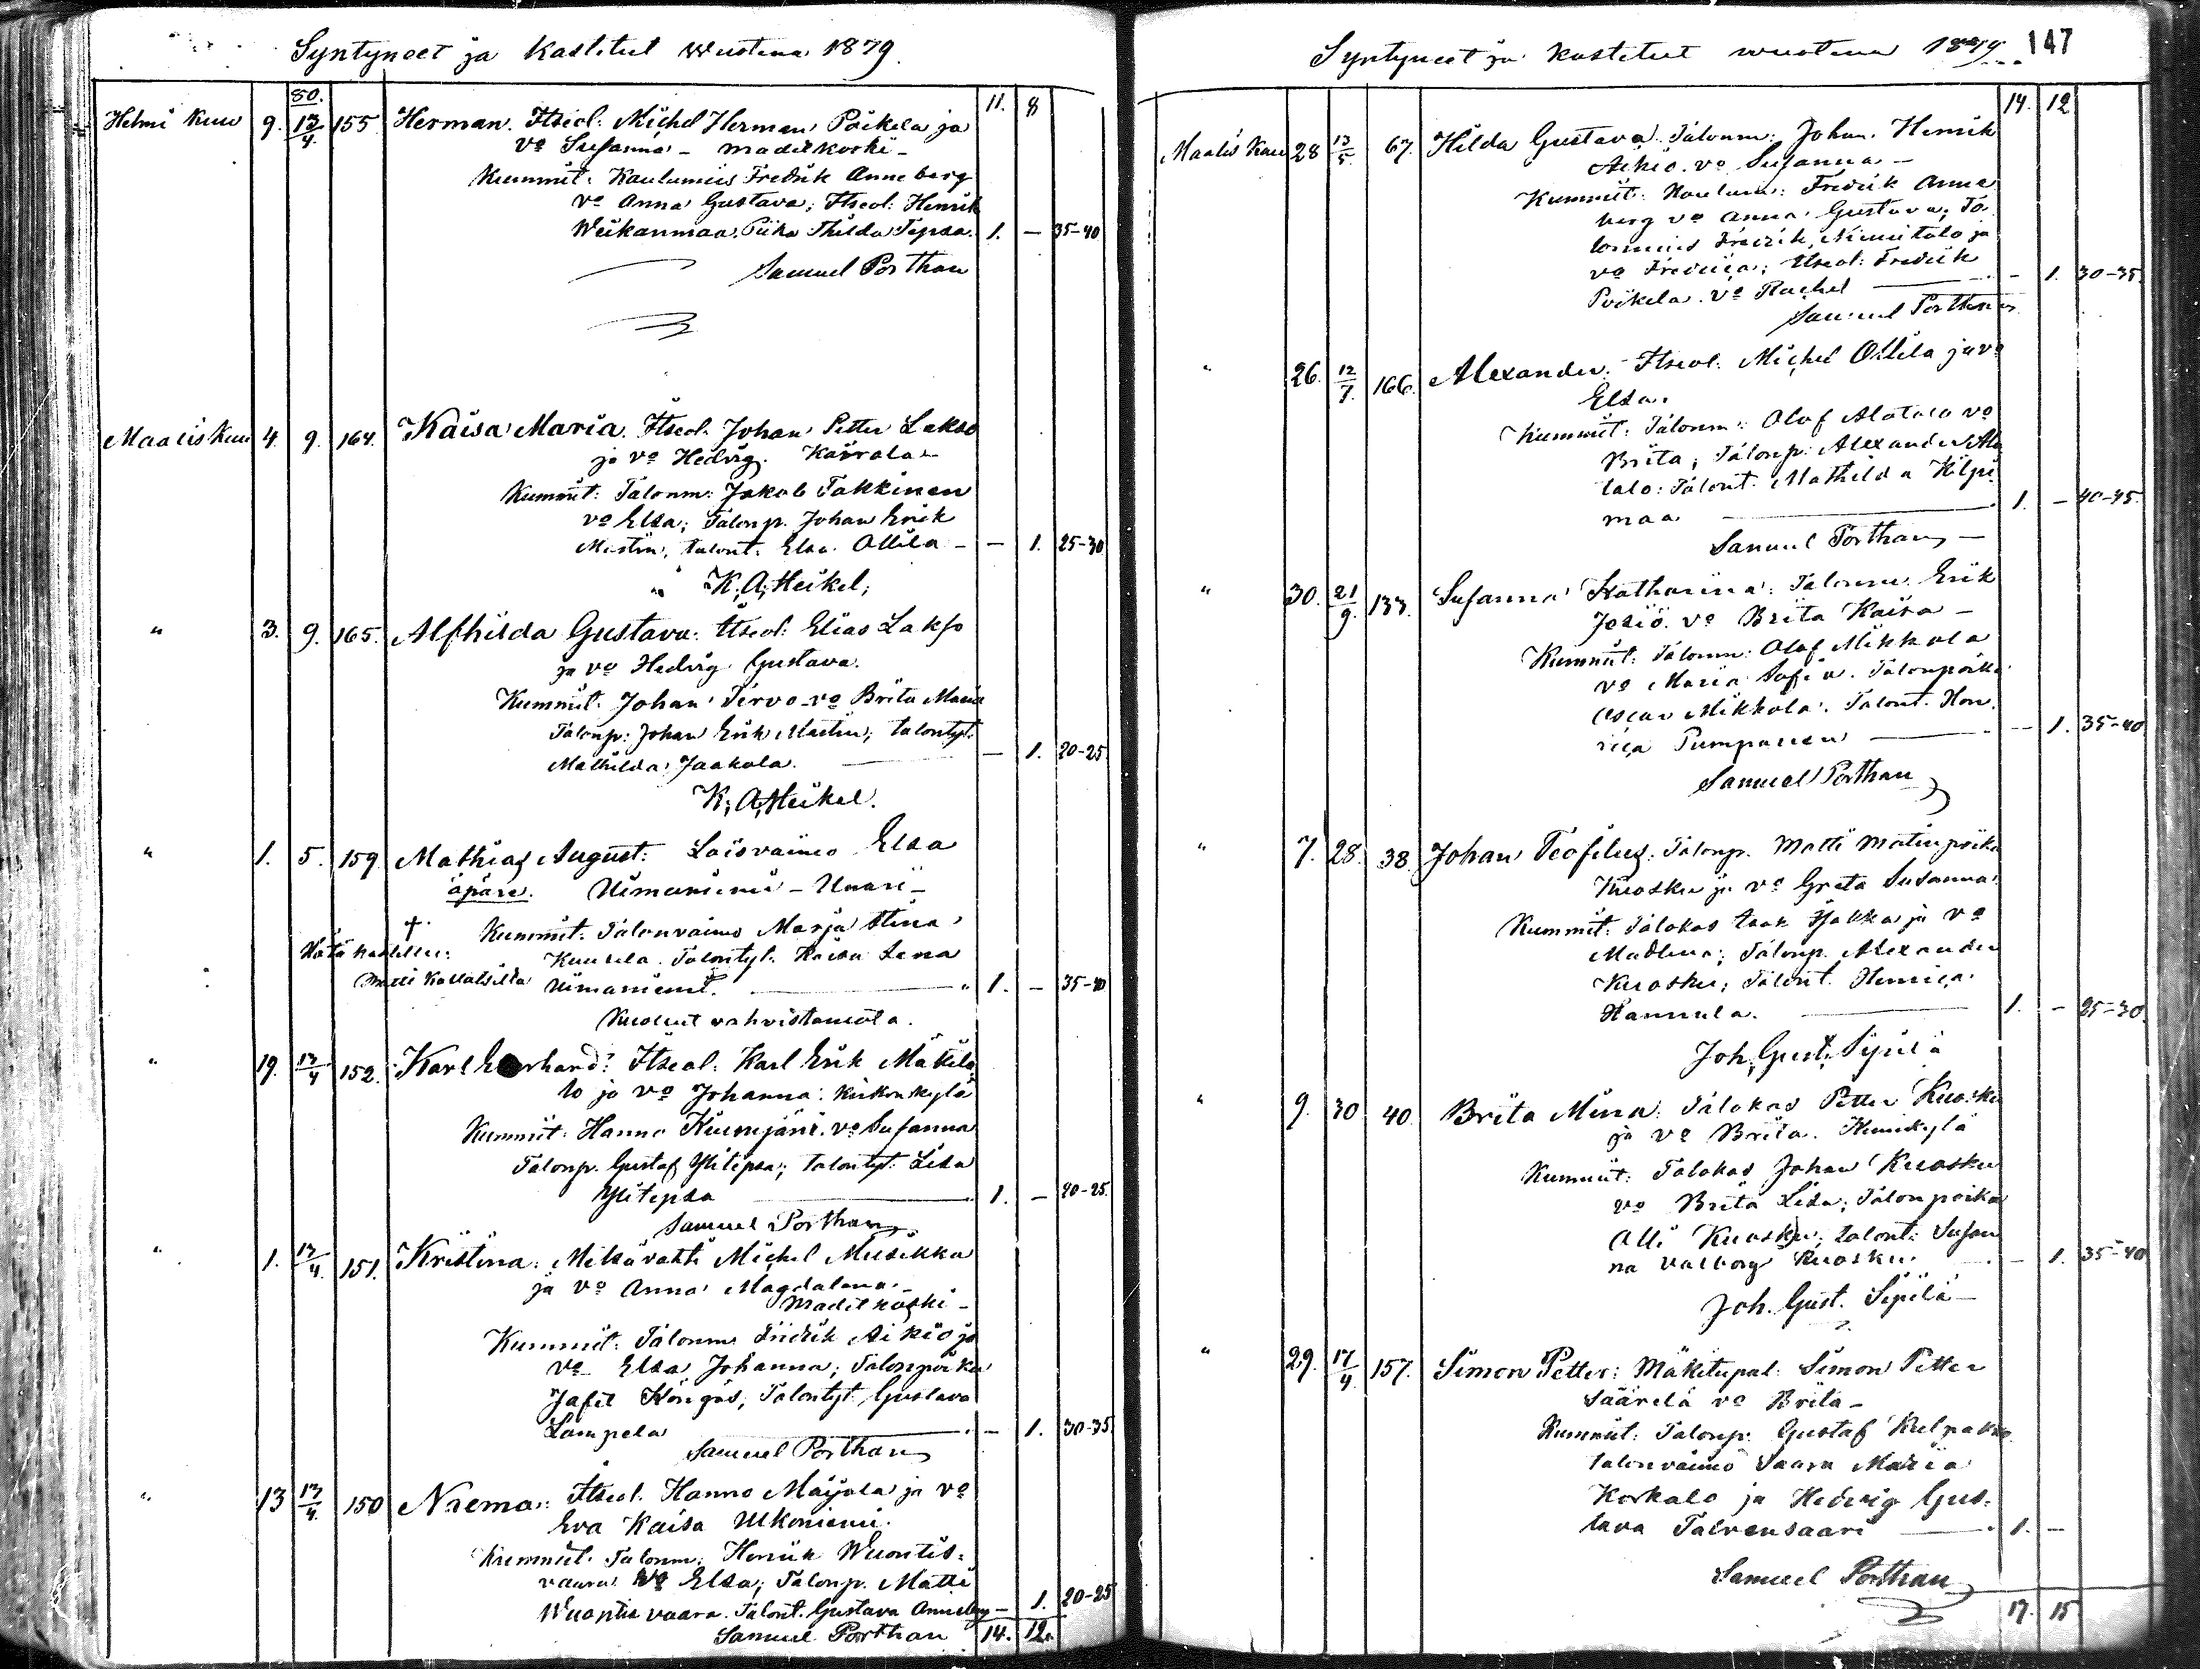 Syntyneet ja Kastetut Wuotena 1879.
80. 11. 8
Helmi Kuu 9. 13/4. 155 Herman. Itseol: Michel Herman Poikela ja
vo Susanna - Madetkoski -
Kummit: Kaulumies Fredrik Anneberg
vo Anna Gustava; Itseol: Henrik
Weikanmaa. Piika Thilda Tepsa. 1. - 35-40
Samuel Porthan
Maalis Kuu 4. 9. 164. Kaisa Maria. Itseol. Johan Petter Lakso
ja vo Hedvig. Kaarala -
Kummit: Talonm: Jakob Takkinen
vo Elsa; Talonp. Johan Erik
Martin, talont. Elsa Ollila - - 1. 25-30
K; A; Heikel;
" 3. 9. 165. Alfhilda Gustava: Itseol: Elias Lakso
ja vo Hedvig Gustava.
Kummit. Johan Tervo vo Brita Maria
Talonp: Johan Erik Martin; talontyt.
Mathilda Jaakola. - 1. 20-25
K; A; Heikel.
" 1. 5. 159 Mathias August: Loisvaimo Elsa
äpäre. Uimaniemi - Unari -
†. Kummit: Talonvaimo Marja Stina
Hätä kastettu: Kuusela. Talontyt. Kaisa Lena
Matti Kallatsilta Uimaniemi. " 1. - 35-40
Kuollut vahvistamata.
" 19. 13/4 152. Karl Eerhard: Itseol: Karl Erik Mäkita
lo ja vo Johanna: Kirkonkylä
Kummit: Hanno Kiimjärvi. vo Susanna
Talonp. Gustaf Ylitepsa; talontyt: Lisa
Ylitepsa 1. - 20-25.
Samuel Porthan
" 1. 13/4. 151. Kristina: Metsävahti Michel Musikka
ja vo Anna Magdalena.
Madetkoski -
Kummit: Talonm. Fridrik Aikio ja
vo Elsa Johanna; Talonpoika
Jafet Köngäs; Talontyt Gustava
Lampela - 1. 30-35.
Samuel Porthan
" 13 13/4. 150 Naema: Itseol. Hanno Maijala ja vo
Eva Kaisa Ukoniemi.
Kummit: Talonm: Henrik Wuontis=
vaara vo Elsa; Talonp. Matti
Wuontis vaara. Talont. Gustava Anneberg - 1. 20-25
Samuel Porthan 14. 12.
Syntyneet ja Kastetut wuotena 1879. 147
14. 12
Maalis Kuu 28 13/5. 67. Hilda Gustava. Talonm: Johan Henrik
Aikio. vo Susanna -
Kummit: Kaulum: Fredrik Anne
berg vo Anna Gustava; Ta
lonmies Fredrik Niemitalo ja
vo Fredrica; Itseol: Fredrik
Poikela. vo Rachel - 1. 30-35.
Samuel Porthan
" 26. 12/7. 166. Alexander. Itseol. Michel Ollila ja vo
Elsa.
Kummit: Talonm: Olof Alatalo vo
Brita; Talonp: Alexander Ala
talo: Talont. Mathilda Kilpi
maa 1. - 40-45.
Samuel Porthan -
" 30. 21/9. 133. Susanna Katharina: Talonm. Erik
Jesiö. vo Brita Kaisa -
Kummit: Talonm: Olof Mikkola
vo Maria Sofia. Talonpoika
Oscar Mikkola. Talont. Hen
rica Pumpanen - 1. 35-40
Samuel Porthan
" 7. 28. 38. Johan Teofilus: Talonp. Matti Matinpoika
Kuosku ja vo Greta Susanna.
Kummit: Talokas Isak Hakka ja vo
Madlena; Talonp. Alexander
Kuosku; Talont. Henrica
Hannula. 1. - 25-30.
Joh; Gust; Sipilä
" 9. 30 40. Brita Mina: Talokas Petter Kuosku
ja vo Brita. Kemikylä
Kummit: Talokas Johan Kuosku
vo Brita Lisa; Talonpoika
Olli Kuosku; talont: Susan
na Valborg Kuosku. - 1. 35-40
Joh. Gust. Sipilä -
" 29. 17/4. 157. Simon Petter: Mäkitupal: Simon Petter
Säärelä vo Brita -
Kummit: Talonp. Gustaf Kulpakko
talonvaimo Saara Maria
Korkalo ja Hedvig Gus=
tava Talvensaari 1. -
Samuel Porthan
17. 15